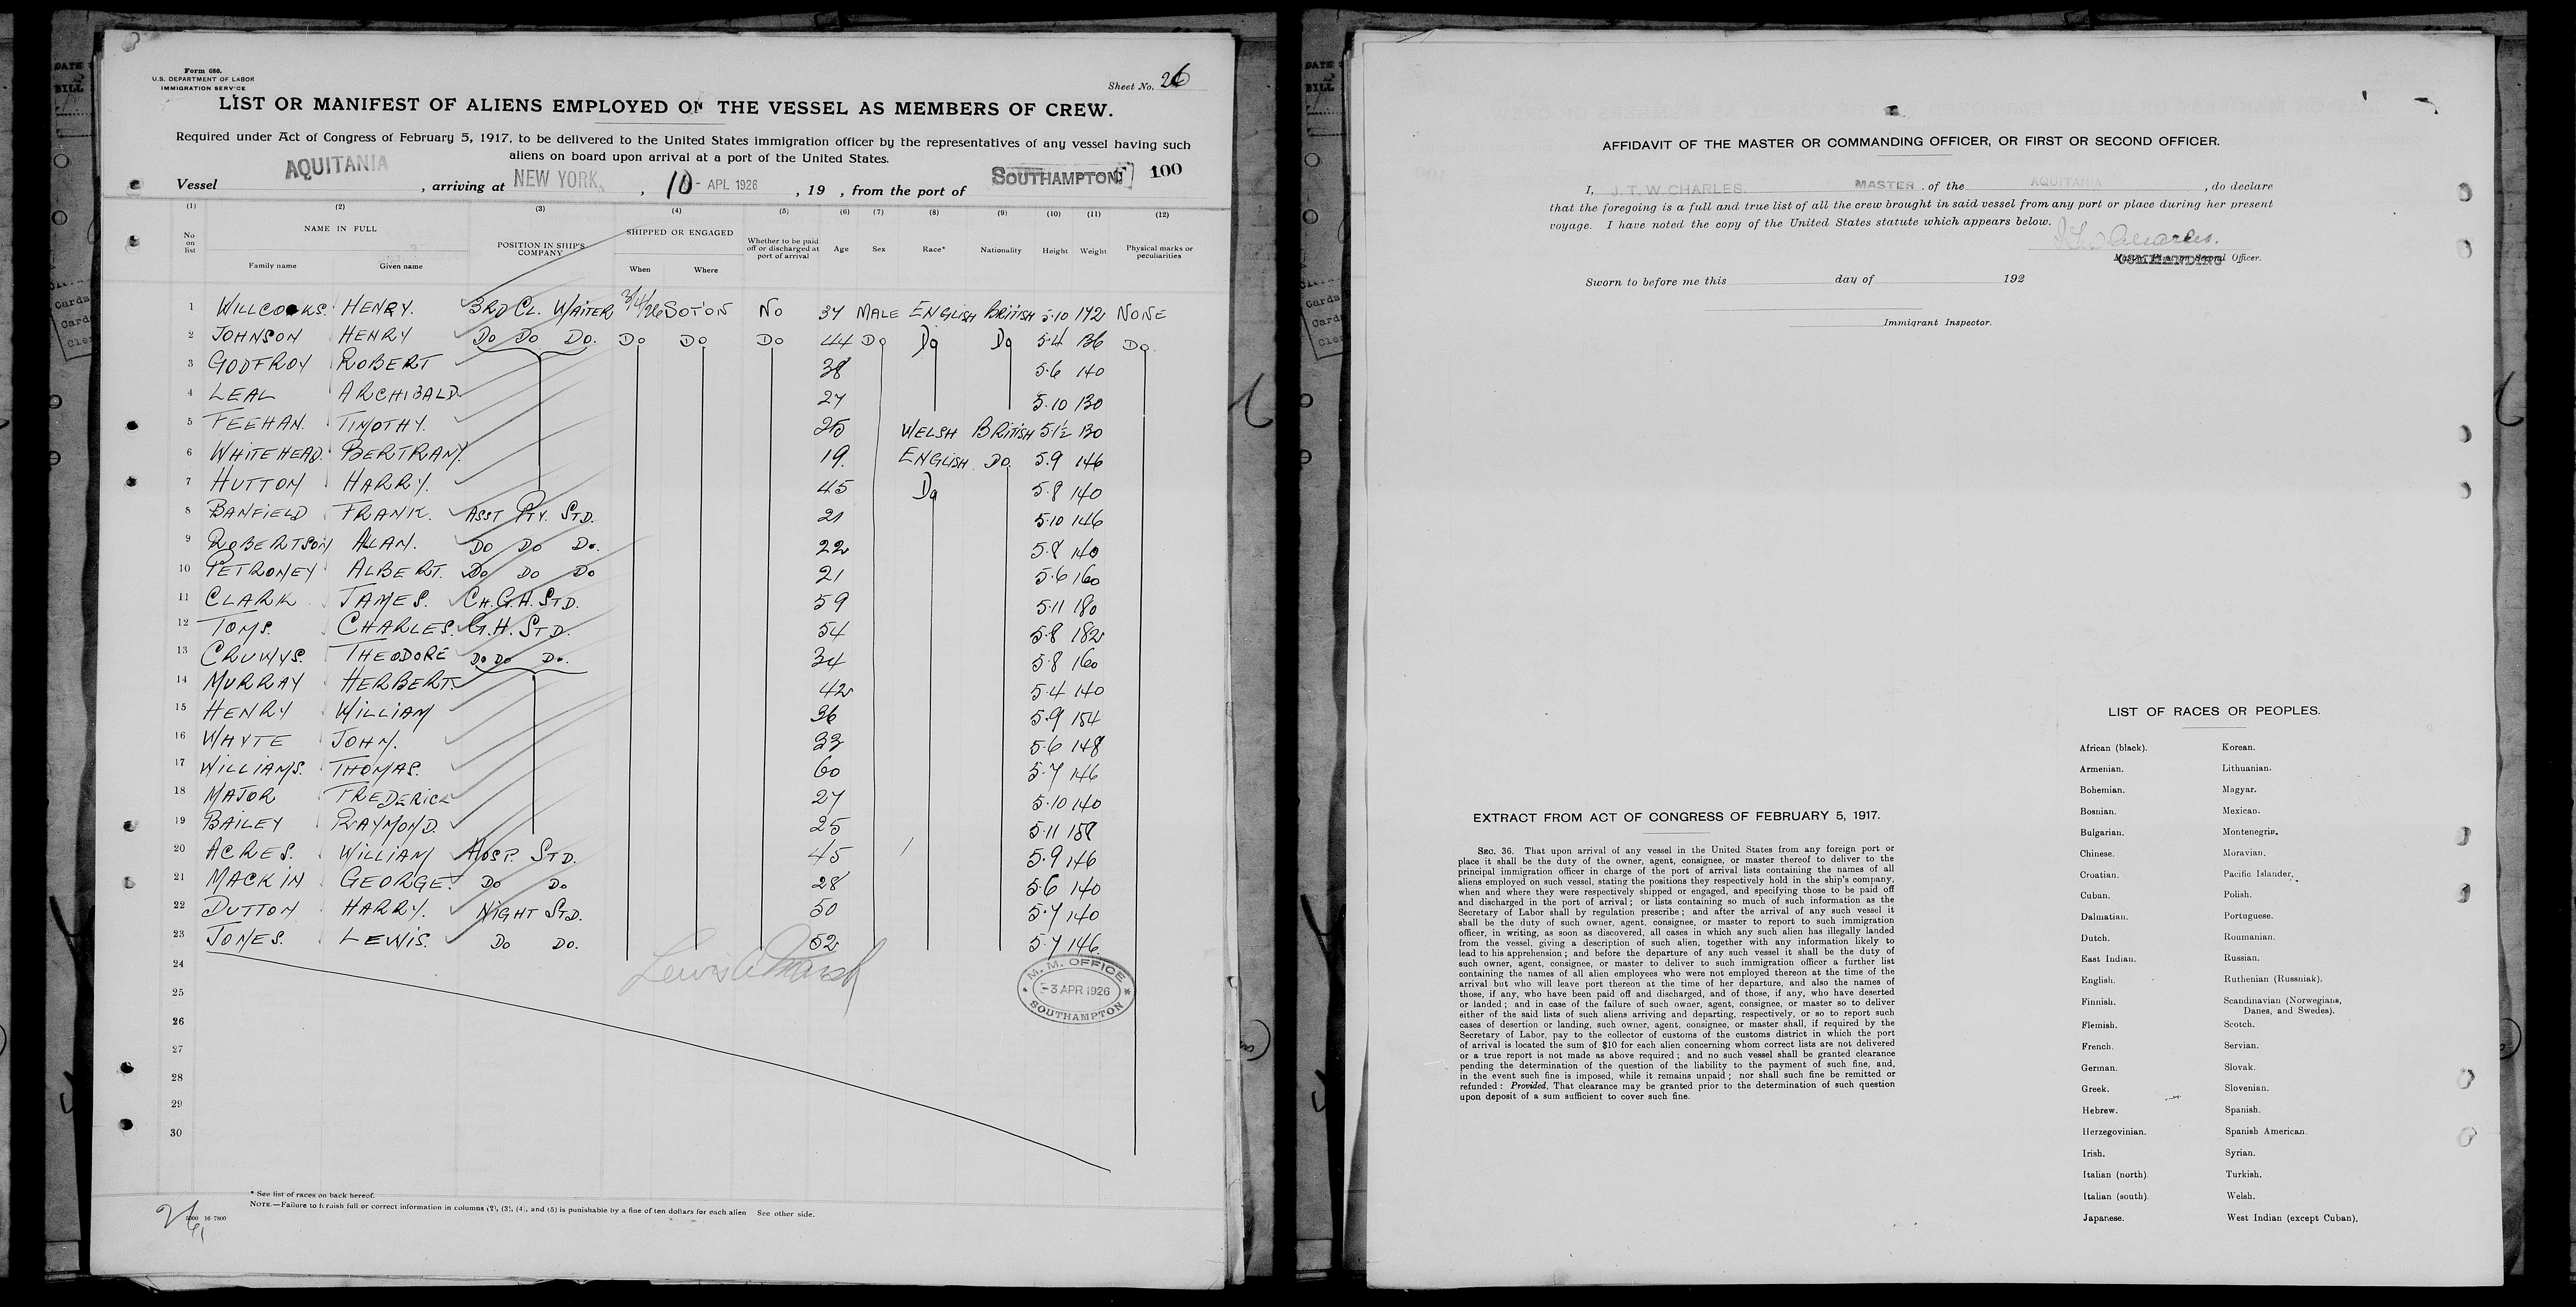 Form 680.
U.S. DEPARTMENT OF LABOR
IMMIGRATION SERVICE
Sheet No. 26
LIST OR MANIFEST OF ALIENS EMPLOYED ON THE VESSEL AS MEMBERS OF CREW.
Required under Act of Congress of February 5, 1917, to be delivered to the United States immigration officer by the representatives of any vessel having such
aliens on board upon arrival at a port of the United States.
Vessel AQUITANIA, arriving at NEW YORK, 10 - APL 1926, 19 , from the port of SOUTHAMPTON 100
(1) (2) (3) (4) (5) (6) (7) (8) (9) (10) (11) (12)
No on list NAME IN FULL Family name Given name POSITION IN SHIP'S COMPANY SHIPPED OR ENGAGED When Where Whether to be paid off or discharged at port of arrival Age Sex Race* Nationality Height Weight Physical marks or peculiarities
1 WILLCOCKS. HENRY. 3RD CL. WAITER 3/4/26 SOTON NO 37 MALE ENGLISH BRITISH 5.10 172 NONE
2 JOHNSON HENRY DO DO DO. DO DO DO 44 DO DO DO 5.4 136 DO.
3 GODFROY ROBERT 38 5.6 140
4 LEAL ARCHIBALD 27 5.10 130
5 FEEHAN. TIMOTHY. 25 WELSH BRITISH 5.1½ 130
6 WHITEHEAD BERTRAM. 19. ENGLISH DO. 5.9 146
7 HUTTON HARRY. 45 DO 5.8 140
8 BANFIELD FRANK. ASST PTY. STD. 21 5.10 146
9 ROBERTSON ALLAN. DO DO DO. 22 5.8 140
10 PETRONEY ALBERT. DO DO DO 21 5.6 160
11 CLARK JAMES. CH. G.H. STD. 59 5.11 180
12 TOMS. CHARLES. G.H. STD. 54 5.8 182
13 CRUWYS. THEODORE DO DO DO. 34 5.8 160
14 MURRAY HERBERT. 42 5.4 140
15 HENRY WILLIAM 36 5.9 154
16 WHYTE JOHN. 33 5.6 148
17 WILLIAMS. THOMAS. 60 5.7 146
18 MAJOR FREDERICK 27 5.10 140
19 BAILEY RAYMOND. 25 5.11 158
20 ACRES. WILLIAM HOSP. STD. 45 5.9 146
21 MACKIN GEORGE. DO DO 28 5.6 140
22 DUTTON HARRY. NIGHT STD. 50 5.7 140
23 JONES. LEWIS. DO DO. 52 5.7 146
24
25
26
27
28
29
30
M. M. OFFICE
-3 APR 1926
SOUTHAMPTON
* See list of races on back hereof.
NOTE.—Failure to furnish full or correct information in columns (2), (3), (4), and (5) is punishable by a fine of ten dollars for each alien See other side.
16-7800
AFFIDAVIT OF THE MASTER OR COMMANDING OFFICER, OR FIRST OR SECOND OFFICER.
I, J. T. W. CHARLES. MASTER of the AQUITANIA, do declare
that the foregoing is a full and true list of all the crew brought in said vessel from any port or place during her present
voyage. I have noted the copy of the United States statute which appears below.
Charles.
COMMANDING Officer.
Sworn to before me this day of 192
Immigrant Inspector.
EXTRACT FROM ACT OF CONGRESS OF FEBRUARY 5, 1917.
SEC. 36. That upon arrival of any vessel in the United States from any foreign port or
place it shall be the duty of the owner, agent, consignee, or master thereof to deliver to the
principal immigration officer in charge of the port of arrival lists containing the names of all
aliens employed on such vessel, stating the positions they respectively hold in the ship's company,
when and where they were respectively shipped or engaged, and specifying those to be paid off
and discharged in the port of arrival; or lists containing so much of such information as the
Secretary of Labor shall by regulation prescribe; and after the arrival of any such vessel it
shall be the duty of such owner, agent, consignee, or master to report to such immigration
officer, in writing, as soon as discovered, all cases in which any such alien has illegally landed
from the vessel, giving a description of such alien, together with any information likely to
lead to his apprehension; and before the departure of any such vessel it shall be the duty of
such owner, agent, consignee, or master to deliver to such immigration officer a further list
containing the names of all alien employees who were not employed thereon at the time of the
arrival but who will leave port thereon at the time of her departure, and also the names of
those, if any, who have been paid off and discharged, and of those, if any, who have deserted
or landed; and in case of the failure of such owner, agent, consignee, or master so to deliver
either of the said lists of such aliens arriving and departing, respectively, or so to report such
cases of desertion or landing, such owner, agent, consignee, or master shall, if required by the
Secretary of Labor, pay to the collector of customs of the customs district in which the port
of arrival is located the sum of $10 for each alien concerning whom correct lists are not delivered
or a true report is not made as above required; and no such vessel shall be granted clearance
pending the determination of the question of the liability to the payment of such fine, and,
in the event such fine is imposed, while it remains unpaid; nor shall such fine be remitted or
refunded: Provided, That clearance may be granted prior to the determination of such question
upon deposit of a sum sufficient to cover such fine.
LIST OF RACES OR PEOPLES.
African (black). Korean.
Armenian. Lithuanian.
Bohemian. Magyar.
Bosnian. Mexican.
Bulgarian. Montenegrin.
Chinese. Moravian.
Croatian. Pacific Islander.
Cuban. Polish.
Dalmatian. Portuguese.
Dutch. Roumanian.
East Indian. Russian.
English. Ruthenian (Russniak).
Finnish. Scandinavian (Norwegians,
Danes, and Swedes).
Flemish. Scotch.
French. Servian.
German. Slovak.
Greek. Slovenian.
Hebrew. Spanish.
Herzegovinian. Spanish American.
Irish. Syrian.
Italian (north). Turkish.
Italian (south). Welsh.
Japanese. West Indian (except Cuban).